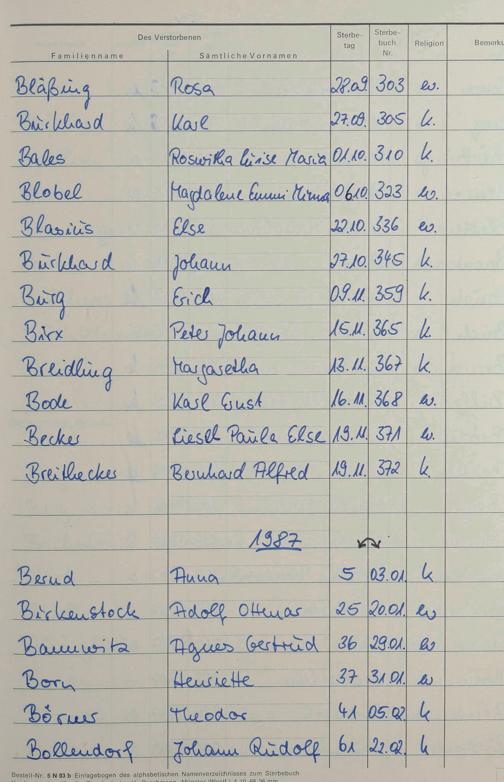 Des Verstorbenen Sterbe- tag Sterbe- buch Nr. Religion Bemerku
Familienname Sämtliche Vornamen
Bläßing Rosa 28.09 303 ev.
Burkhard Karl 27.09. 305 k.
Bales Roswitha Luise Maria 01.10. 310 k.
Blobel Magdalene Emmi Minna 06.10. 323 ev.
Blasius Else 22.10. 336 ev.
Burkhard Johann 27.10. 345 k.
Burg Erich 09.11. 359 k.
Birx Peter Johann 15.11. 365 k.
Breidling Margaretha 13.11. 367 k.
Bode Karl Ernst 16.11. 368 ev.
Becker Liesel Paula Else 19.11. 371 ev.
Breithecker Bernhard Alfred 19.11. 372 k.
1987
Bernd Anna 5 03.01. k
Birkenstock Adolf Ottmar 25 20.01. ev
Baumwitz Agnes Gertrud 36 29.01. ev
Born Henriette 37 31.01. ev
Börner Theodor 41 05.02. k
Bollendorf Johann Rudolf 61 22.02. k
Bestell-Nr. S N 83 b Einlagebogen des alphabetischen Namenverzeichnisses zum Sterbebuch